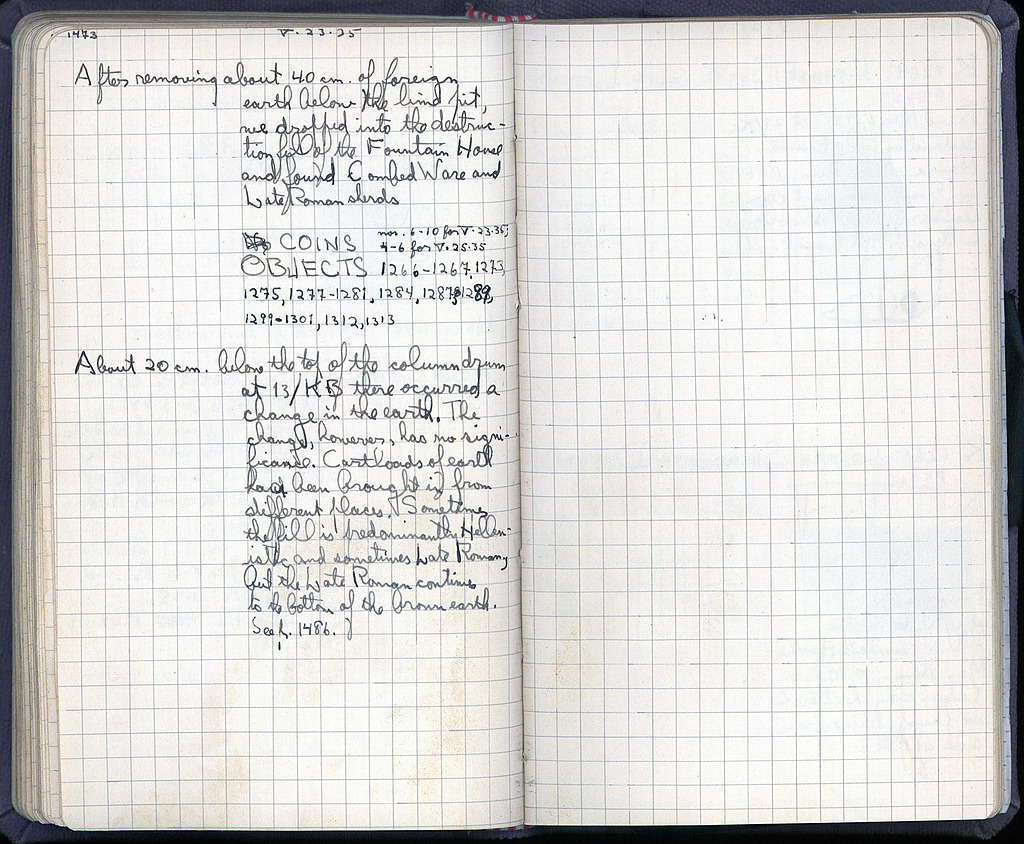 1473
V.23.35
After removing about 40 cm. of foreign
earth below the lime pit,
we dropped into the destruc-
tion fill of the Fountain House
and found Combed Ware and
Late Roman sherds
COINS nos. 6-10 for V.23.35,
4-6 for V.25.35
OBJECTS 1266-1267, 1273,
1275, 1277-1281, 1284, 1287, 1289,
1299-1301, 1312, 1313
About 20 cm. below the top of the column drum
at 13/KB there occurred a
change in the earth. The
change, however, has no signi-
ficance. Cartloads of earth
had been brought in from
different places. Sometimes
the fill is predominantly Hellen-
istic and sometimes Late Roman,
but the Late Roman continues
to the bottom of the brown earth.
See p. 1486.